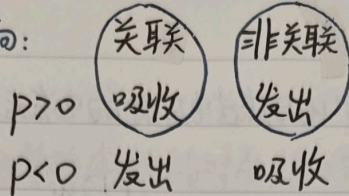 向: 关联 非关联
P>0 吸收 发出
P<0 发出 吸收